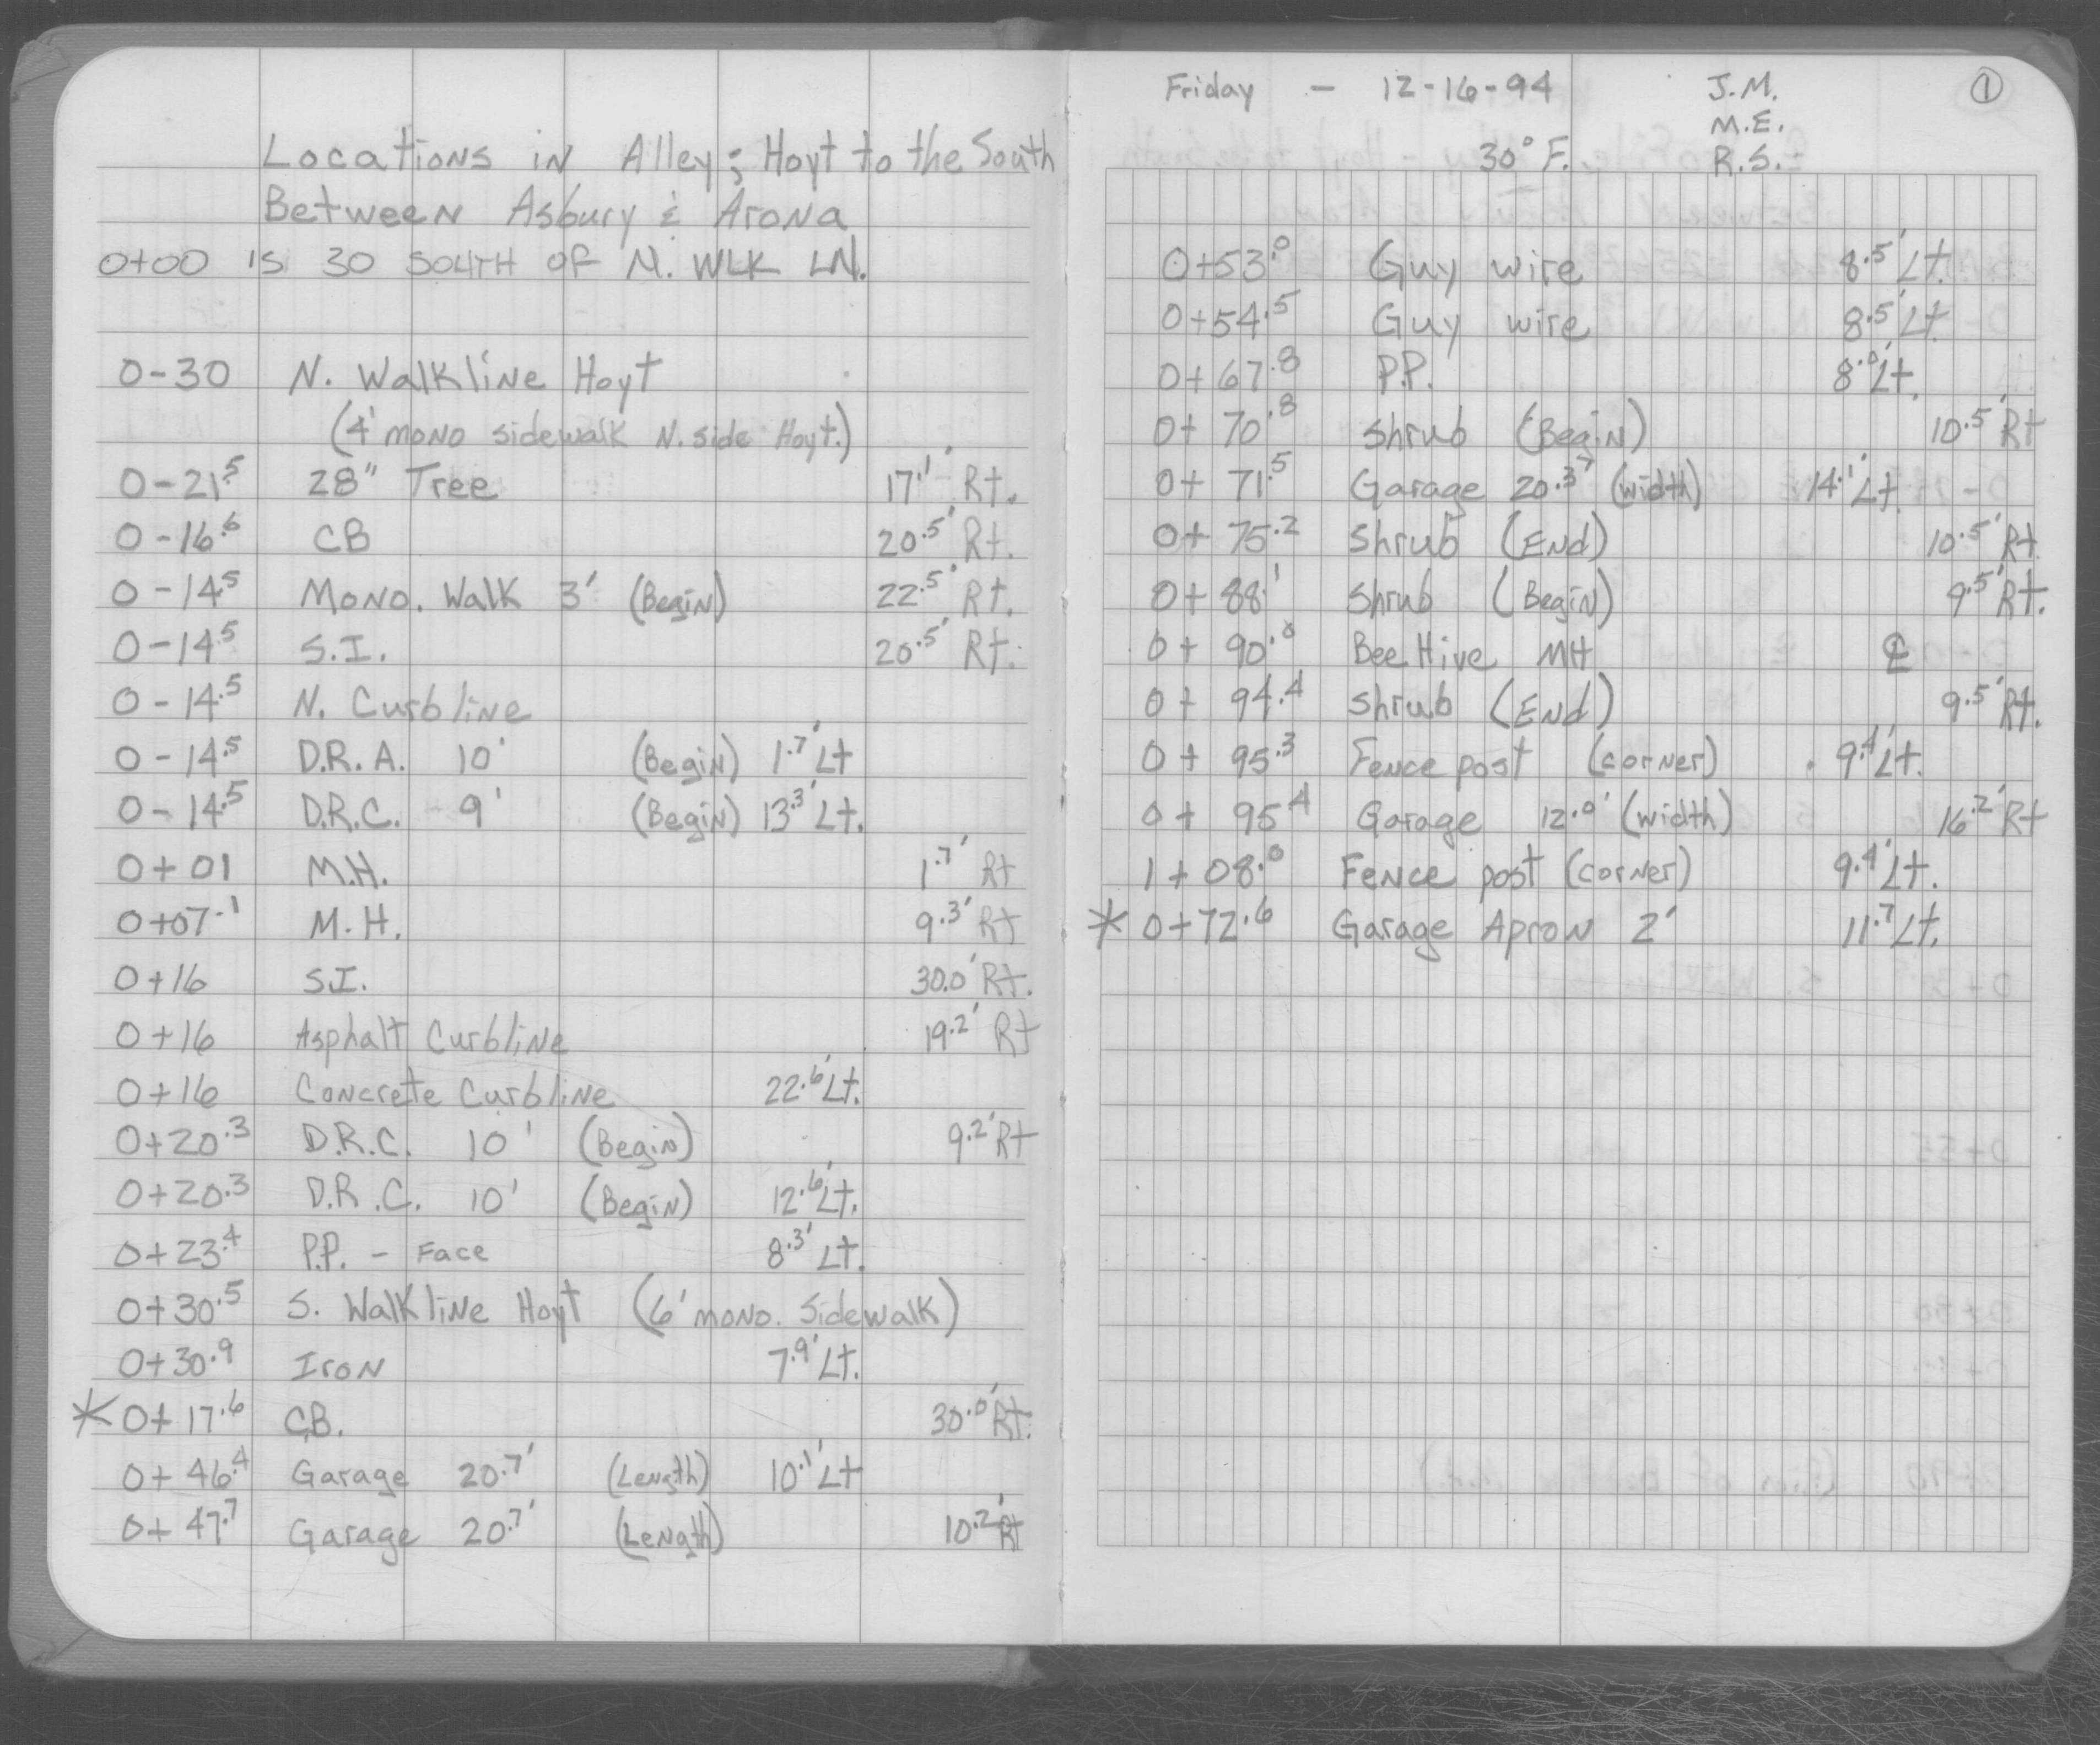 Locations in Alley; Hoyt to the South
Between Asbury & Arona
0+00 is 30 South of N. WLK LN.
0-30 N. Walkline Hoyt
(4' mono sidewalk N. side Hoyt.)
0-21.5 28" Tree 17.1' Rt.
0-16.6 CB 20.5' Rt.
0-14.5 Mono. Walk 3' (Begin) 22.5' Rt.
0-14.5 S.I. 20.5' Rt.
0-14.5 N. Curbline
0-14.5 D.R.A. 10' (Begin) 1.7' Lt
0-14.5 D.R.C. 9' (Begin) 13.3' Lt.
0+01 M.H. 1.7' Rt
0+07.1 M.H. 9.3' Rt
0+16 S.I. 30.0' Rt.
0+16 Asphalt Curbline 19.2' Rt
0+16 Concrete Curbline 22.6' Lt.
0+20.3 D.R.C. 10' (Begin) 9.2' Rt
0+20.3 D.R.C. 10' (Begin) 12.6' Lt.
0+23.4 P.P. - Face 8.3' Lt.
0+30.5 S. Walkline Hoyt (6' mono. Sidewalk)
0+30.9 Iron 7.9' Lt.
* 0+17.6 C.B. 30.0' Rt.
0+46.4 Garage 20.7' (Length) 10.1' Lt
0+47.7 Garage 20.7' (Length) 10.2' Rt
Friday - 12-16-94 J.M. 1
M.E.
30° F. R.S.
0+53.0 Guy wire 8.5' Lt.
0+54.5 Guy wire 8.5' Lt
0+67.8 P.P. 8.0' Lt.
0+70.8 Shrub (Begin) 10.5' Rt
0+71.5 Garage 20.3' (width) 14.1' Lt.
0+75.2 Shrub (End) 10.5' Rt.
0+88.1 Shrub (Begin) 9.5' Rt.
0+90.0 Bee Hive MH ℄
0+94.4 Shrub (End) 9.5' Rt.
0+95.3 Fence post (corner) 9.4' Lt.
0+95.4 Garage 12.0' (width) 16.2' Rt
1+08.0 Fence post (corner) 9.4' Lt.
* 0+72.6 Garage Apron 2' 11.7' Lt.